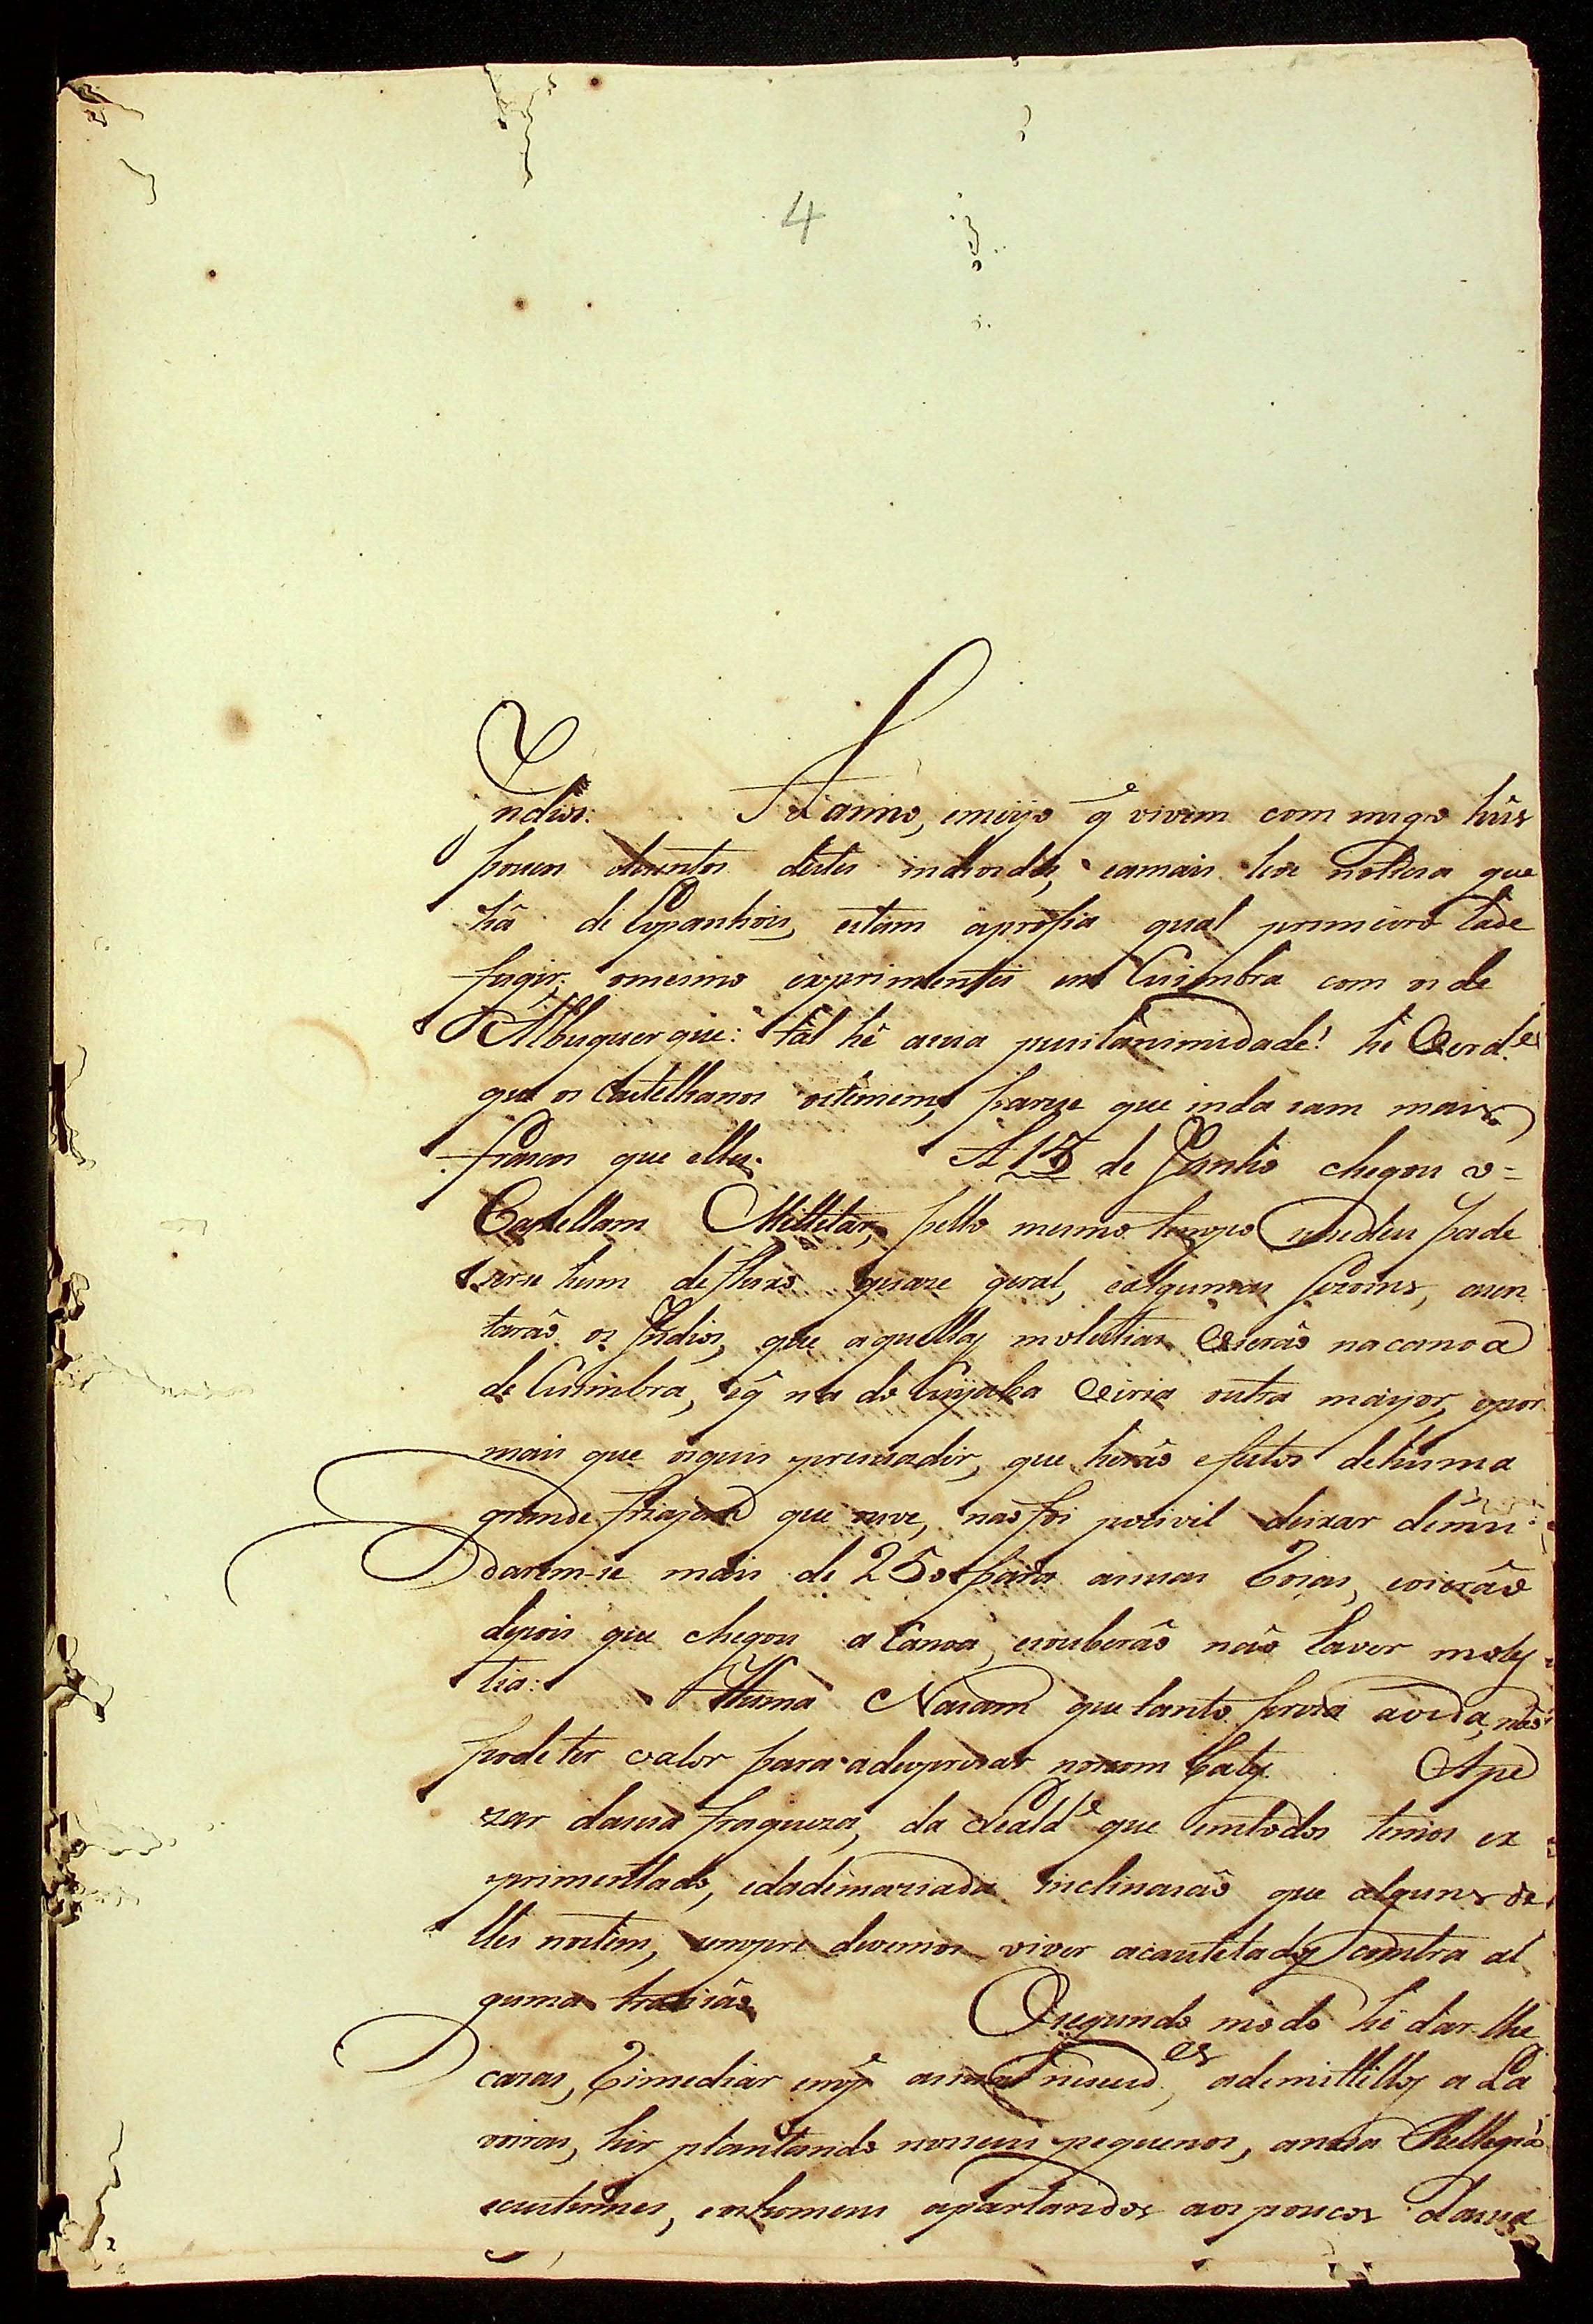 4
Indios: Há anno, emeyo q̃ vivem com migo huñs
poucos destes indiosdes, eamais leve notisia que
há de Espanhois, estam aprofia qual primeiro hade
fugir; omesmo exprimentei em Cuimbra com os de
Albuquerque: tál hé asua puzilanimidade! hé Verd.e
que os Castelhanos ostemem, parese que inda sam mais
fracos que elles. A 15 de Junho chegou o=
Capellam Millitar, pello mesmo tempo susedeu pade
serse hum defluxo quaze geral, ealgumas sezoins, asen
tarão os Indios, que aquellas molestias Vierão nacanoa
de Cuimbra, eq̃ na do Cuyaba Viria outra mayor, epor
mais que osquis presuadir, que herão efeitos dehuma
grande friajem que ouve, nasfoi posivel deixar demu
darem-se mais de 250 para assuas Tosas, eosierão
depois que chegou a Canoa, esouberão não haver moles
tia: Huma Nasam que tanto preza avida, não
pode ter valor para adesprezar nonom bate. Ape
zar dasua fraqueza, da Leald.e que emtodos temos ex
primentado, edademaziada inclinasão que alguns de
lles nostem, sempre devemos viver acautelados contra al
guma traisão. Osegundo modo hé dar-lhe
cazas, Eimediar emp.e assuas neseçid.es, ademittillos a La
voiras, hir plantando nosseus pequenos, anosa Rellegião
ecustumes, eoshomens apartandos aos poucos dasua